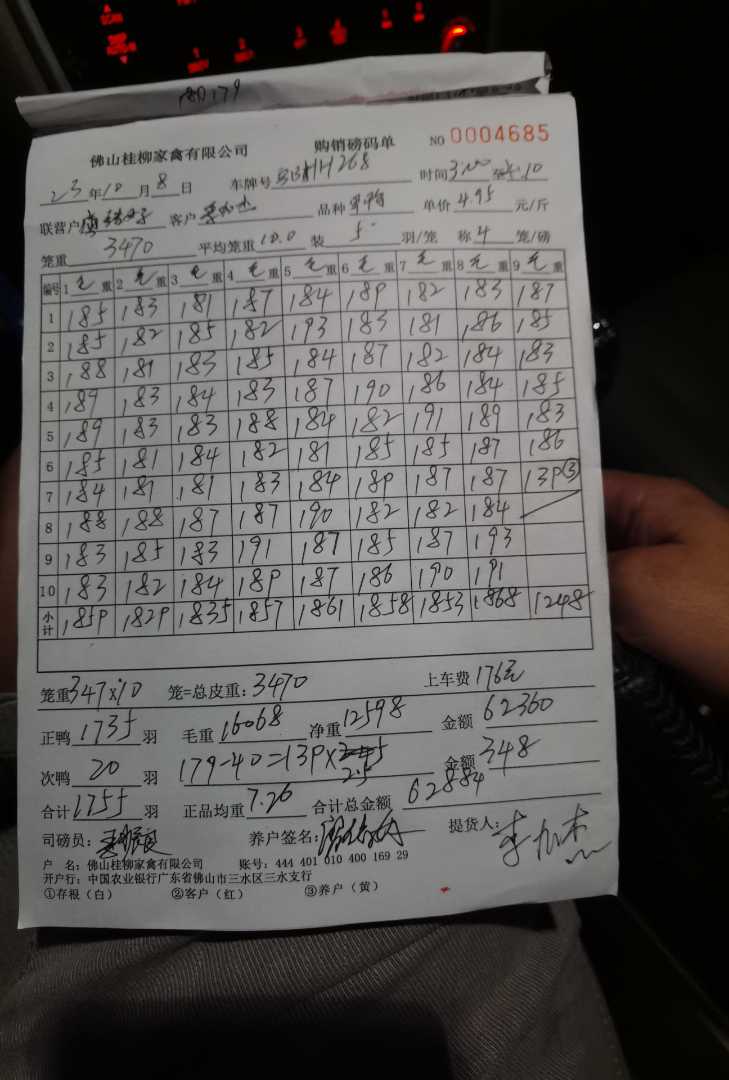 180179
佛山桂柳家禽有限公司 购销磅码单 NO 0004685
23年10月8日 车牌号 268 时间3:00
联营户 客户 品种 单价 4.95 元/斤
笼重 3470 平均笼重 10.0 装 5 羽/笼 称 4 笼/磅
编号 1 毛重 2 毛重 3 毛重 4 毛重 5 毛重 6 毛重 7 毛重 8 毛重 9 毛重
1 185 183 181 187 184 189 182 183 187
2 185 182 185 182 193 183 181 186 185
3 188 181 183 185 184 187 182 184 183
4 189 183 184 183 187 190 186 184 185
5 189 183 183 188 184 182 191 189 183
6 185 181 184 182 181 185 185 187 186
7 184 181 181 183 184 189 187 187 139③
8 188 188 187 187 190 182 182 184
9 183 185 183 191 187 185 187 193
10 183 182 184 189 187 186 190 191
小计 1859 1829 1835 1857 1861 1858 1853 1868 1248
笼重347×10 笼=总皮重:3470 上车费 176元
正鸭 1735 羽 毛重 16068 净重 12598 金额 62360
次鸭 20 羽 179-40=139× 2.5 金额 348
合计 1755 羽 正品均重 7.26 合计总金额 62884
司磅员: 养户签名: 提货人:
户 名:佛山桂柳家禽有限公司 账号:444 401 010 400 169 29
开户行:中国农业银行广东省佛山市三水区三水支行
①存根(白) ②客户(红) ③养户(黄)